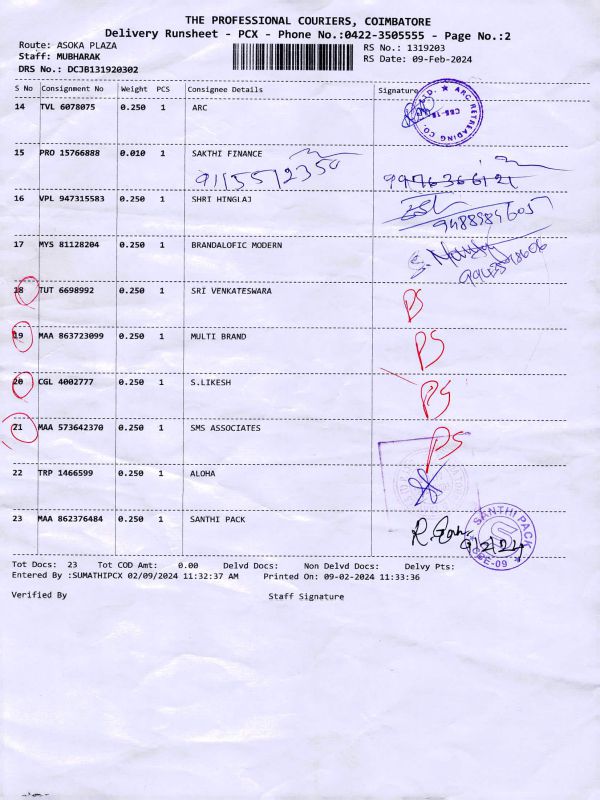 THE PROFESSIONAL COURIERS, COIMBATORE
Delivery Runsheet - PCX - Phone No.:0422-3505555 - Page No.:2
Route: ASOKA PLAZA
RS No.: 1319203
Staff: MUBHARAK
RS Date: 09-Feb-2024
DRS No.: DCJB131920302
S No Consignment No Weight PCS Consignee Details Signature
14 TVL 6078075 0.250 1 ARC
ARC RETREADING CO.
15 PRO 15766888 0.010 1 SAKTHI FINANCE
9976366121
16 VPL 947315583 0.250 1 SHRI HINGLAJ
17 MYS 81128204 0.250 1 BRANDALOFIC MODERN
18 TUT 6698992 0.250 1 SRI VENKATESWARA PS
19 MAA 863723099 0.250 1 MULTI BRAND PS
20 CGL 4002777 0.250 1 S.LIKESH PS
21 MAA 573642370 0.250 1 SMS ASSOCIATES PS
22 TRP 1466599 0.250 1 ALOHA
23 MAA 862376484 0.250 1 SANTHI PACK
SANTHI PACK
CBE-09
9/2/24
Tot Docs: 23 Tot COD Amt: 0.00 Delvd Docs: Non Delvd Docs: Delvy Pts:
Entered By :SUMATHIPCX 02/09/2024 11:32:37 AM Printed On: 09-02-2024 11:33:36
Verified By Staff Signature